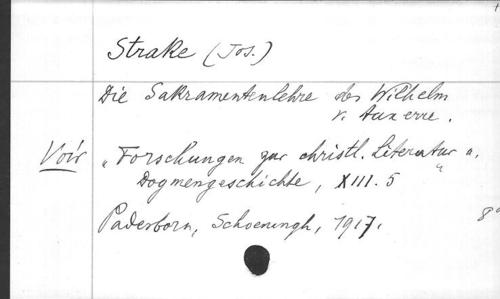 Strake (Jos.)
Die Sakramentenlehre des Wilhelm
v. Auxerre.
Voir "Forschungen zur christl. Literatur u.
Dogmengeschichte", XIII. 5
Paderborn, Schoeningh, 1917.
8°